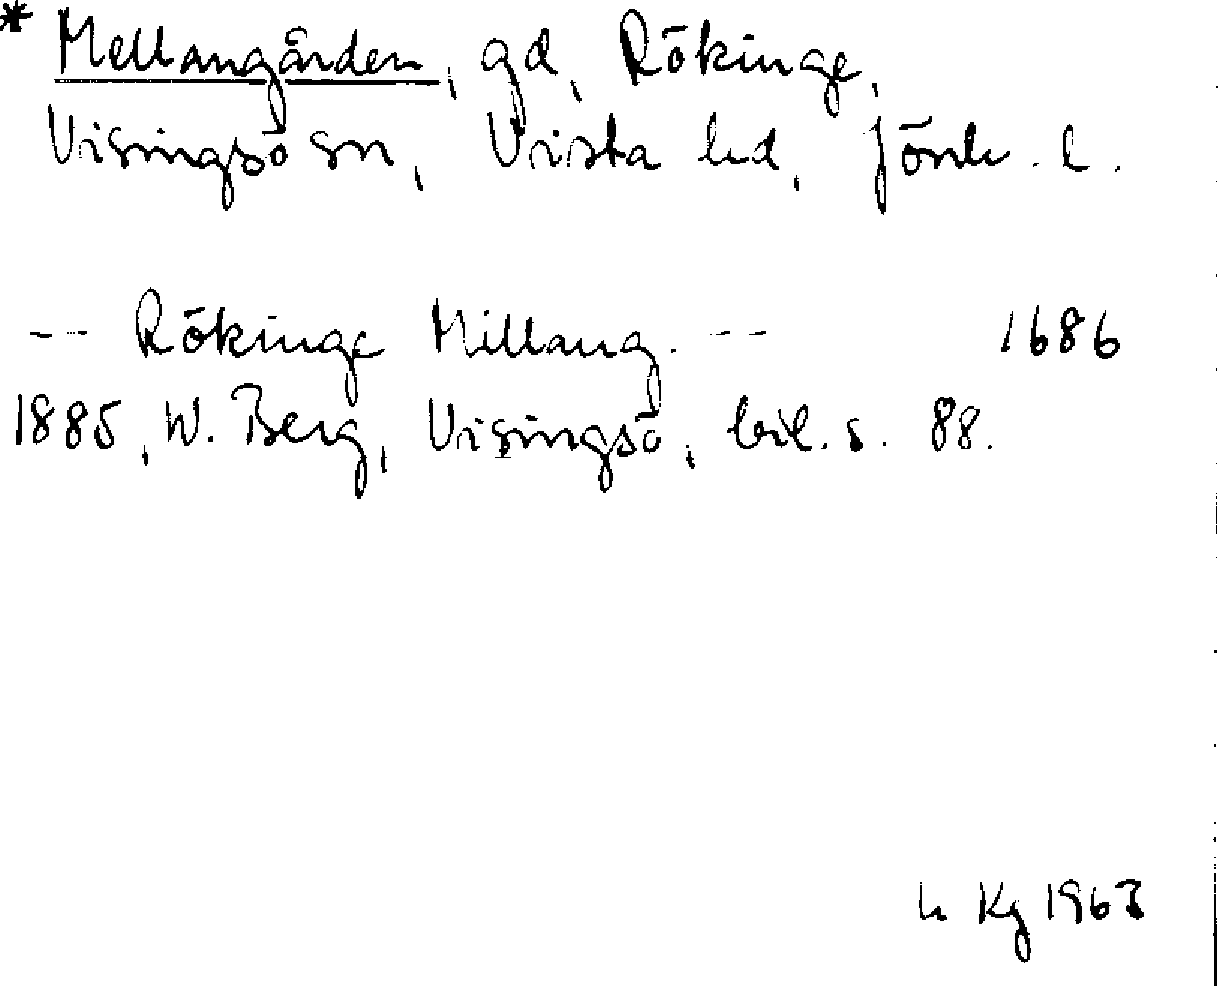 * Mellangården, gd, Rökinge,
Visingsö sn, Vista hd, Jönk. l.
-- Rökinge Millang. -- 1686
1885, W. Berg, Visingsö, bil. s. 88.
Kg 1963